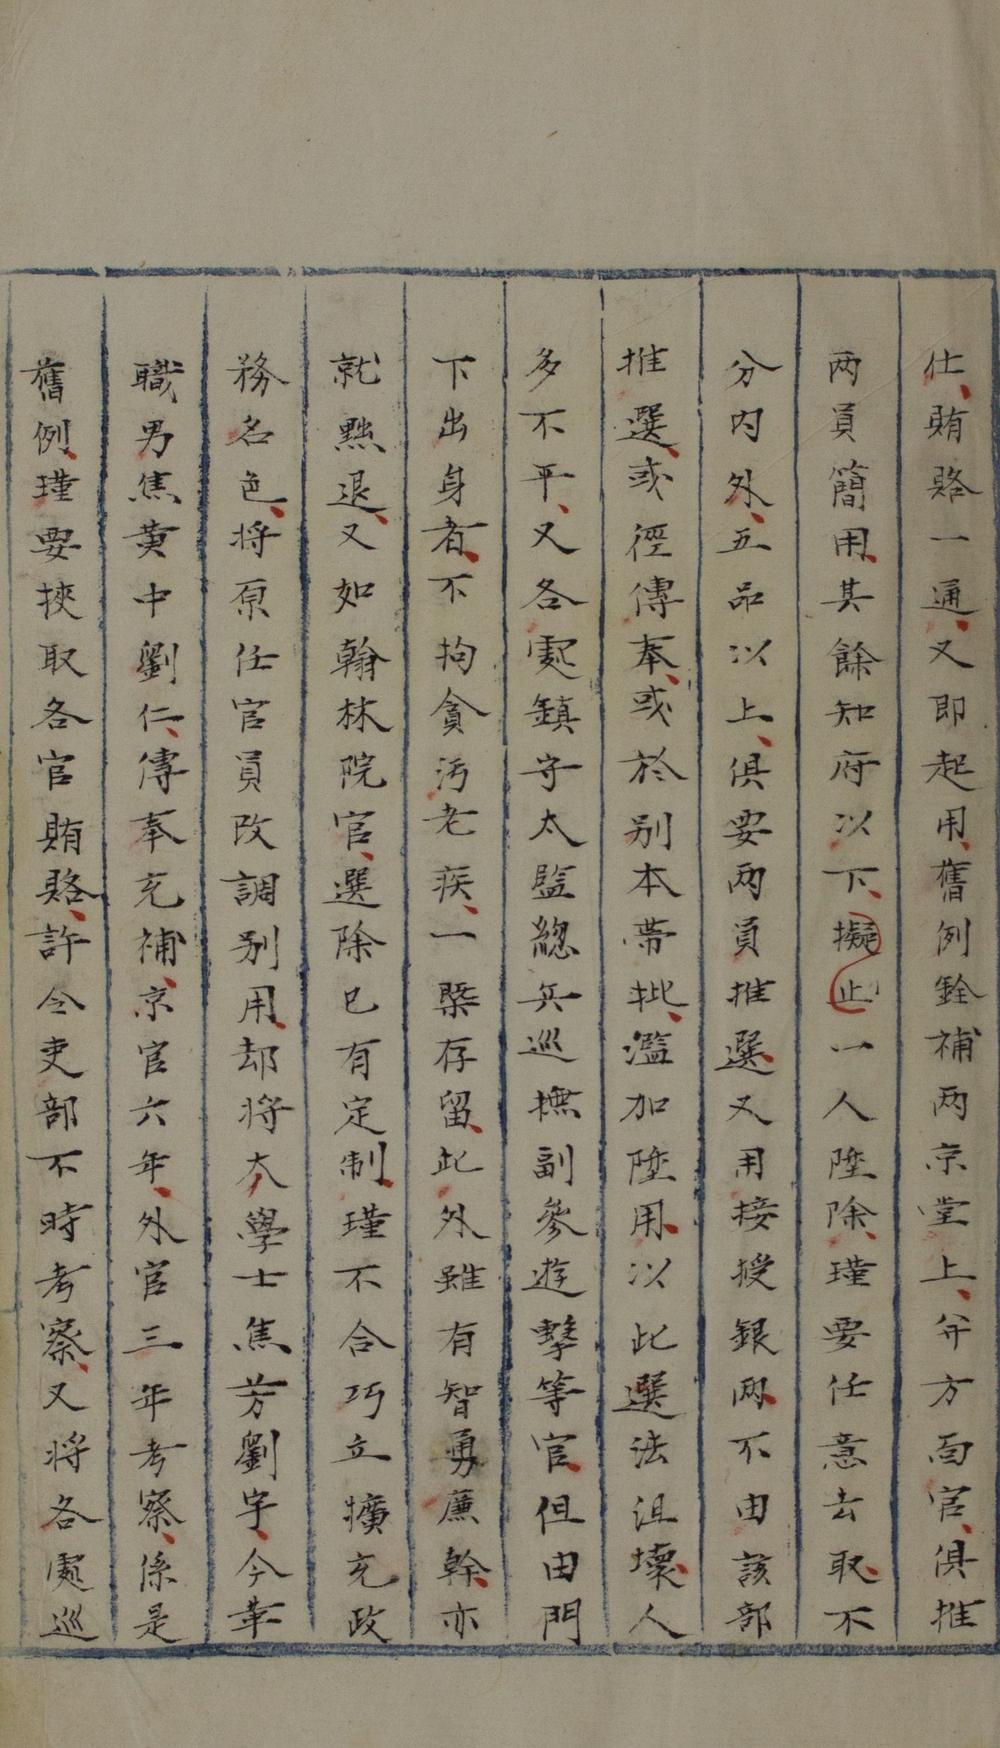 仕賄賂一通又即起用舊例銓補两京堂上并方面官俱推
两員簡用其餘知府以下擬止一人陞除瑾要任意去取不
分内外五品以上俱要两員推選又用接授銀两不由該部
推選或徑傳奉或於别本帶批濫加陞用以此選法沮壞人
多不平又各處鎮守太監總兵巡撫副參遊擊等官但由門
下出身者不拘貪汚老疾一槩存留此外雖有智勇廉幹亦
就黜退又如翰林院官選除已有定制瑾不合巧立擴充政
務名色将原任官員改調别用却将大學士焦芳劉宇今革
職男焦黄中劉仁傳奉充補京官六年外官三年考察係是
舊例瑾要挾取各官賄賂許令吏部不時考察又将各處巡